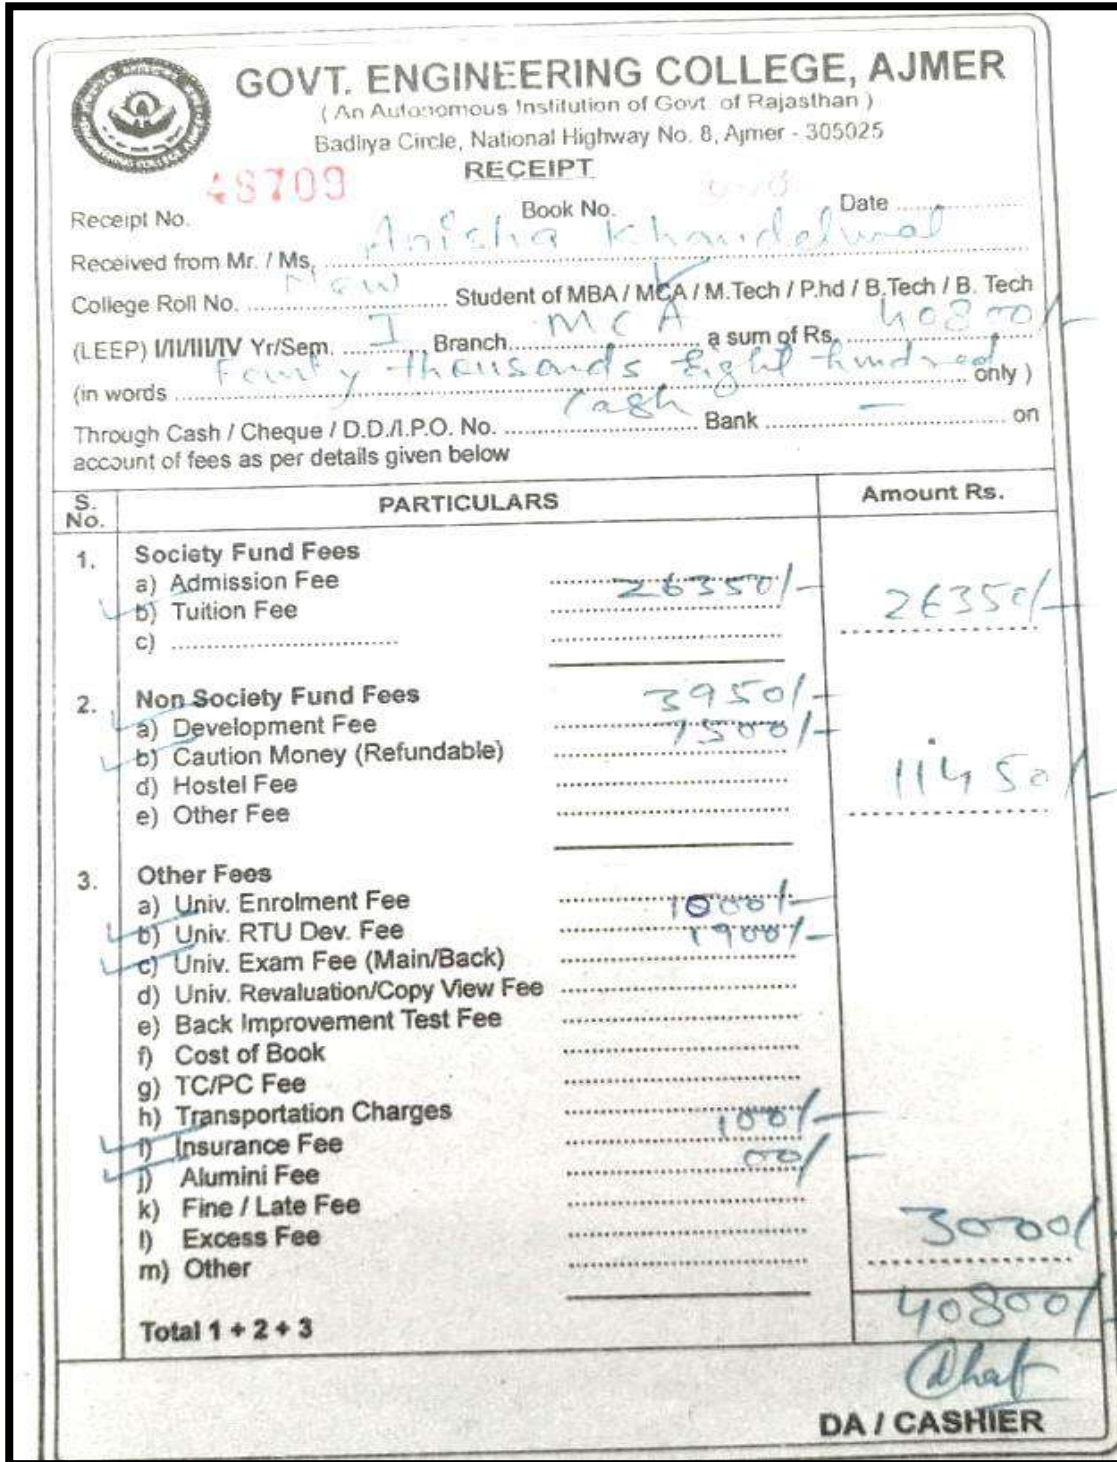 GOVT. ENGINEERING COLLEGE, AJMER
( An Autonomous Institution of Govt. of Rajasthan )
Badliya Circle, National Highway No. 8, Ajmer - 305025
RECEIPT
48709
Receipt No. Book No. Date ....................
Received from Mr. / Ms. Anisha Khandelwal
College Roll No. New Student of MBA / MCA / M.Tech / P.hd / B.Tech / B. Tech
(LEEP) I/II/III/IV Yr/Sem. I Branch MCA a sum of Rs. 40800/-
(in words Fourty thousands Eight hundred only )
Through Cash / Cheque / D.D./I.P.O. No. Cash Bank — on
account of fees as per details given below
S. No. PARTICULARS Amount Rs.
1. Society Fund Fees
a) Admission Fee 26350/-
b) Tuition Fee 26350/-
c) ....................
2. Non Society Fund Fees 3950/-
a) Development Fee 7500/-
b) Caution Money (Refundable)
d) Hostel Fee 11450/-
e) Other Fee
3. Other Fees
a) Univ. Enrolment Fee 1000/-
b) Univ. RTU Dev. Fee 1900/-
c) Univ. Exam Fee (Main/Back)
d) Univ. Revaluation/Copy View Fee
e) Back Improvement Test Fee
f) Cost of Book
g) TC/PC Fee
h) Transportation Charges 100/-
i) Insurance Fee 00/-
j) Alumini Fee
k) Fine / Late Fee
l) Excess Fee 3000/
m) Other
Total 1 + 2 + 3 40800/
DA / CASHIER